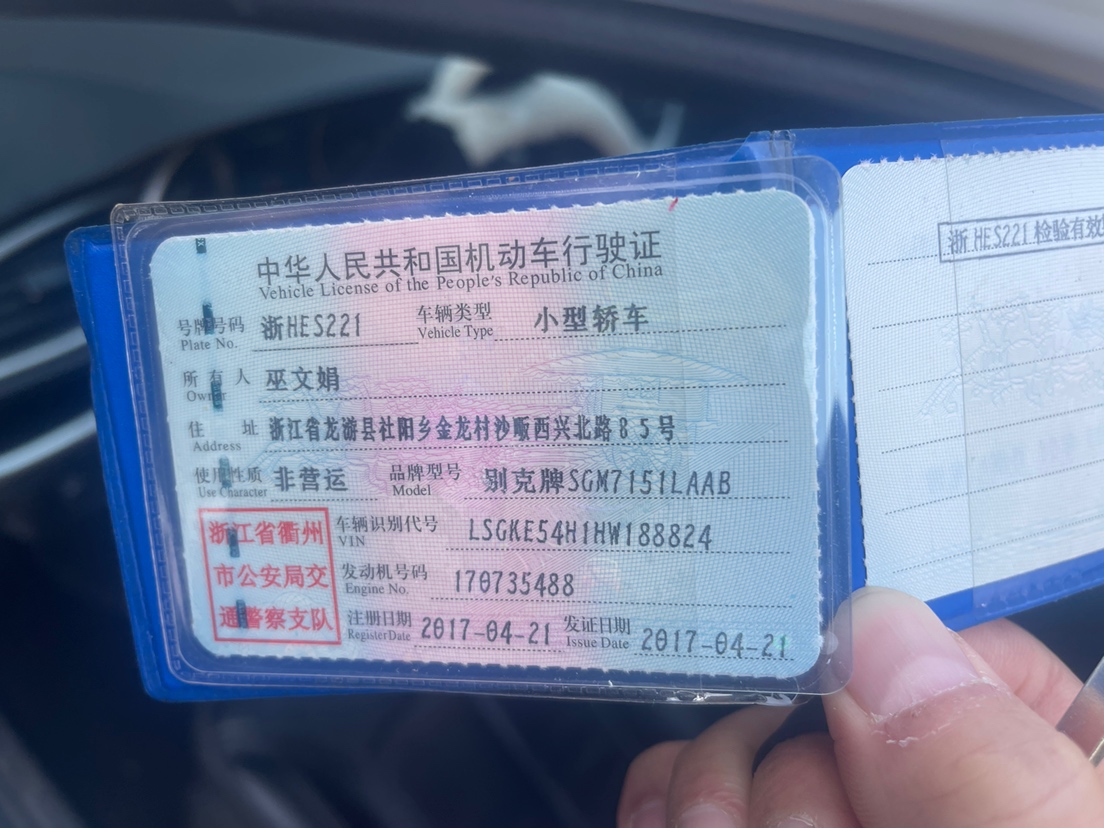 中华人民共和国机动车行驶证
Vehicle License of the People's Republic of China
号牌号码 浙HES221 车辆类型 小型轿车
Plate No. Vehicle Type
所有人 巫文娟
Owner
住址 浙江省龙游县社阳乡金龙村沙畈西兴北路85号
Address
使用性质 非营运 品牌型号 别克牌SGM7151LAAB
Use Character Model
浙江省衢州
市公安局交
通警察支队
车辆识别代号 LSGKE54H1HW188824
VIN
发动机号码 170735488
Engine No.
注册日期 2017-04-21 发证日期 2017-04-21
Register Date Issue Date
浙HES221 检验有效